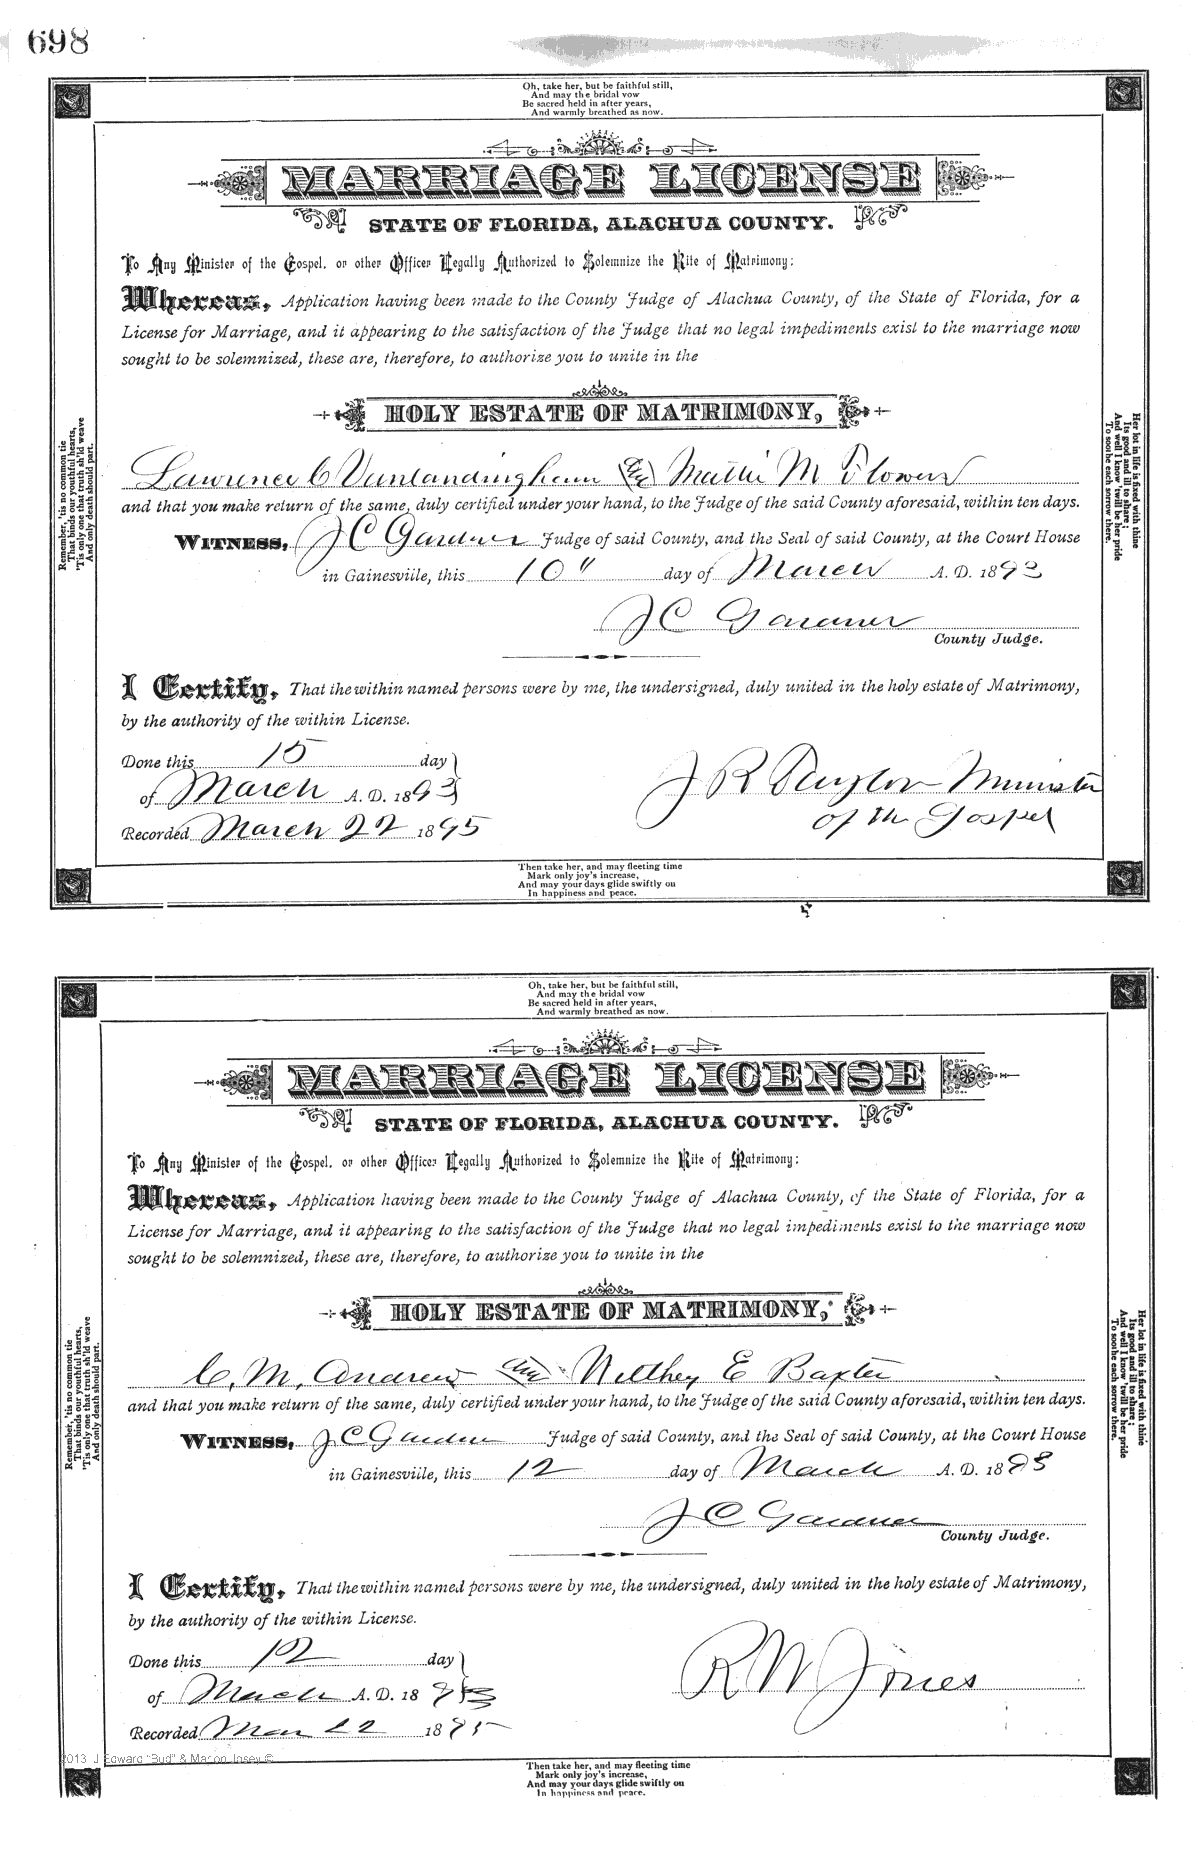 698
Oh, take her, but be faithful still,
And may the bridal vow
Be sacred held in after years,
And warmly breathed as now.
MARRIAGE LICENSE
STATE OF FLORIDA, ALACHUA COUNTY.
To Any Minister of the Gospel, or other Officer Legally Authorized to Solemnize the Rite of Matrimony:
Whereas, Application having been made to the County Judge of Alachua County, of the State of Florida, for a
License for Marriage, and it appearing to the satisfaction of the Judge that no legal impediments exist to the marriage now
sought to be solemnized, these are, therefore, to authorize you to unite in the
HOLY ESTATE OF MATRIMONY,
Lawrence C Vanlandingham and Mattie M Flowers
and that you make return of the same, duly certified under your hand, to the Judge of the said County aforesaid, within ten days.
WITNESS, J C Gardner Judge of said County, and the Seal of said County, at the Court House
in Gainesville, this 10" day of March A. D. 1893
J C Gardner
County Judge.
I Certify, That the within named persons were by me, the undersigned, duly united in the holy estate of Matrimony,
by the authority of the within License.
Done this 15 day
of March A. D. 1893
Recorded March 22 1895
J R Taylor Minister
of the Gospel
Remember, 'tis no common tie
That binds our youthful hearts,
'Tis only one that truth sh'ld weave
And only death should part.
Her lot in life is fixed with thine
Its good and ill to share;
And well I know 'twill be her pride
To soothe each sorrow there.
Then take her, and may fleeting time
Mark only joy's increase,
And may your days glide swiftly on
In happiness and peace.
Oh, take her, but be faithful still,
And may the bridal vow
Be sacred held in after years,
And warmly breathed as now.
MARRIAGE LICENSE
STATE OF FLORIDA, ALACHUA COUNTY.
To Any Minister of the Gospel, or other Officer Legally Authorized to Solemnize the Rite of Matrimony:
Whereas, Application having been made to the County Judge of Alachua County, of the State of Florida, for a
License for Marriage, and it appearing to the satisfaction of the Judge that no legal impediments exist to the marriage now
sought to be solemnized, these are, therefore, to authorize you to unite in the
HOLY ESTATE OF MATRIMONY,
C. M. Andrew and E Baxter
and that you make return of the same, duly certified under your hand, to the Judge of the said County aforesaid, within ten days.
WITNESS, J C Gardner Judge of said County, and the Seal of said County, at the Court House
in Gainesville, this 12 day of March A. D. 1893
J C Gardner
County Judge.
I Certify, That the within named persons were by me, the undersigned, duly united in the holy estate of Matrimony,
by the authority of the within License.
Done this 12 day
of March A. D. 1893
Recorded Mar 22 1895
R W Jones
Remember, 'tis no common tie
That binds our youthful hearts,
'Tis only one that truth sh'ld weave
And only death should part.
Her lot in life is fixed with thine
Its good and ill to share;
And well I know 'twill be her pride
To soothe each sorrow there.
2013 J Edward "Bud" & Marion Josey ©
Then take her, and may fleeting time
Mark only joy's increase,
And may your days glide swiftly on
In happiness and peace.